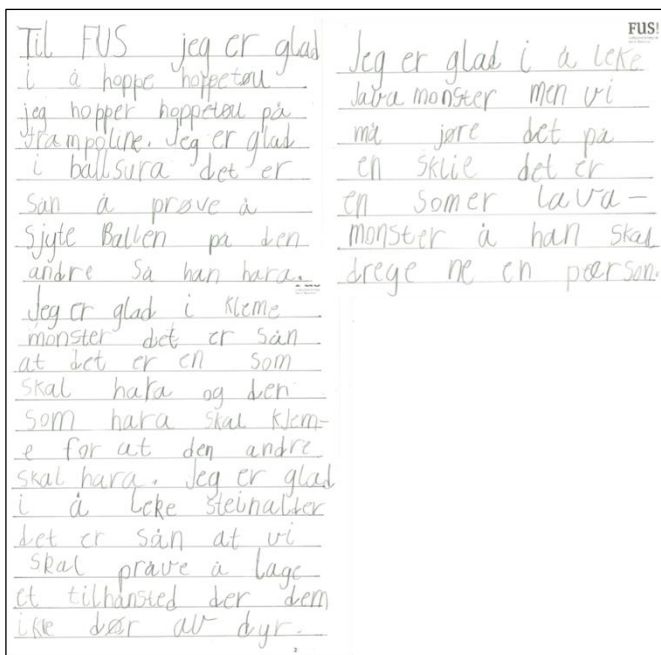 Til FUS jeg er glad
i å hoppe hoppetøu
jeg hopper hoppetøu på
trampoline. Jeg er glad
i ballsura det er
sån å prøve å
sjyte Ballen på den
andre Så han hara.
Jeg er glad i kleme
monster det er sån
at det er en som
skal hara og den
som hara skal klem-
e for at den andre
skal hara. Jeg er glad
i å leke steinalder
det er sån at vi
skal prøve å lage
et tilhånsted der dem
ikke dør av dyr.
2
FUS!
Jeg er glad i å leke
lava monster men vi
må jøre det på
en sklie det er
en somer lava-
monster å han skal
drege ne en pærson.